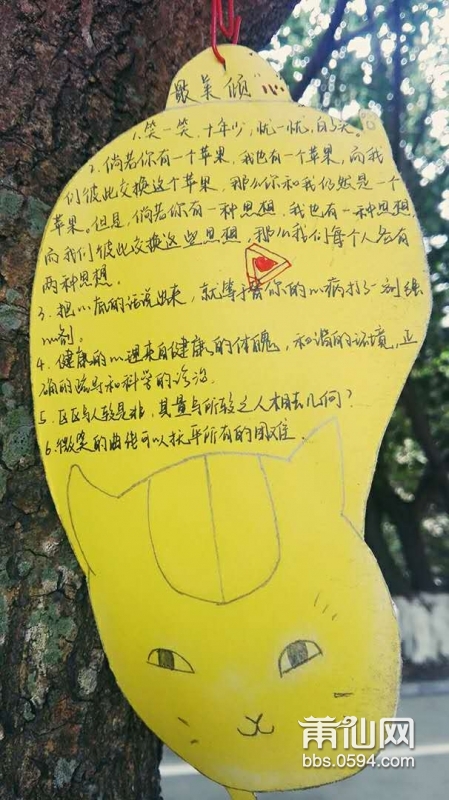 最美倾“心”
1.笑一笑，十年少，忧一忧，白了头。
2.倘若你有一个苹果，我也有一个苹果，而我
们彼此交换这个苹果，那么你和我仍然是一个
苹果。但是，倘若你有一种思想，我也有一种思想，
而我们彼此交换这些思想，那么我们每个人各有
两种思想。
3.把心底的话说出来，就等于替你的心病打了一剂强
心剂。
4.健康的心理来自健康的体魄，和谐的环境，正
确的疏导和科学的诊治。
5.区区与人较是非，其量与所较之人相去几何？
6.微笑的曲线可以扶平所有的困难。
莆仙网
bbs.0594.com